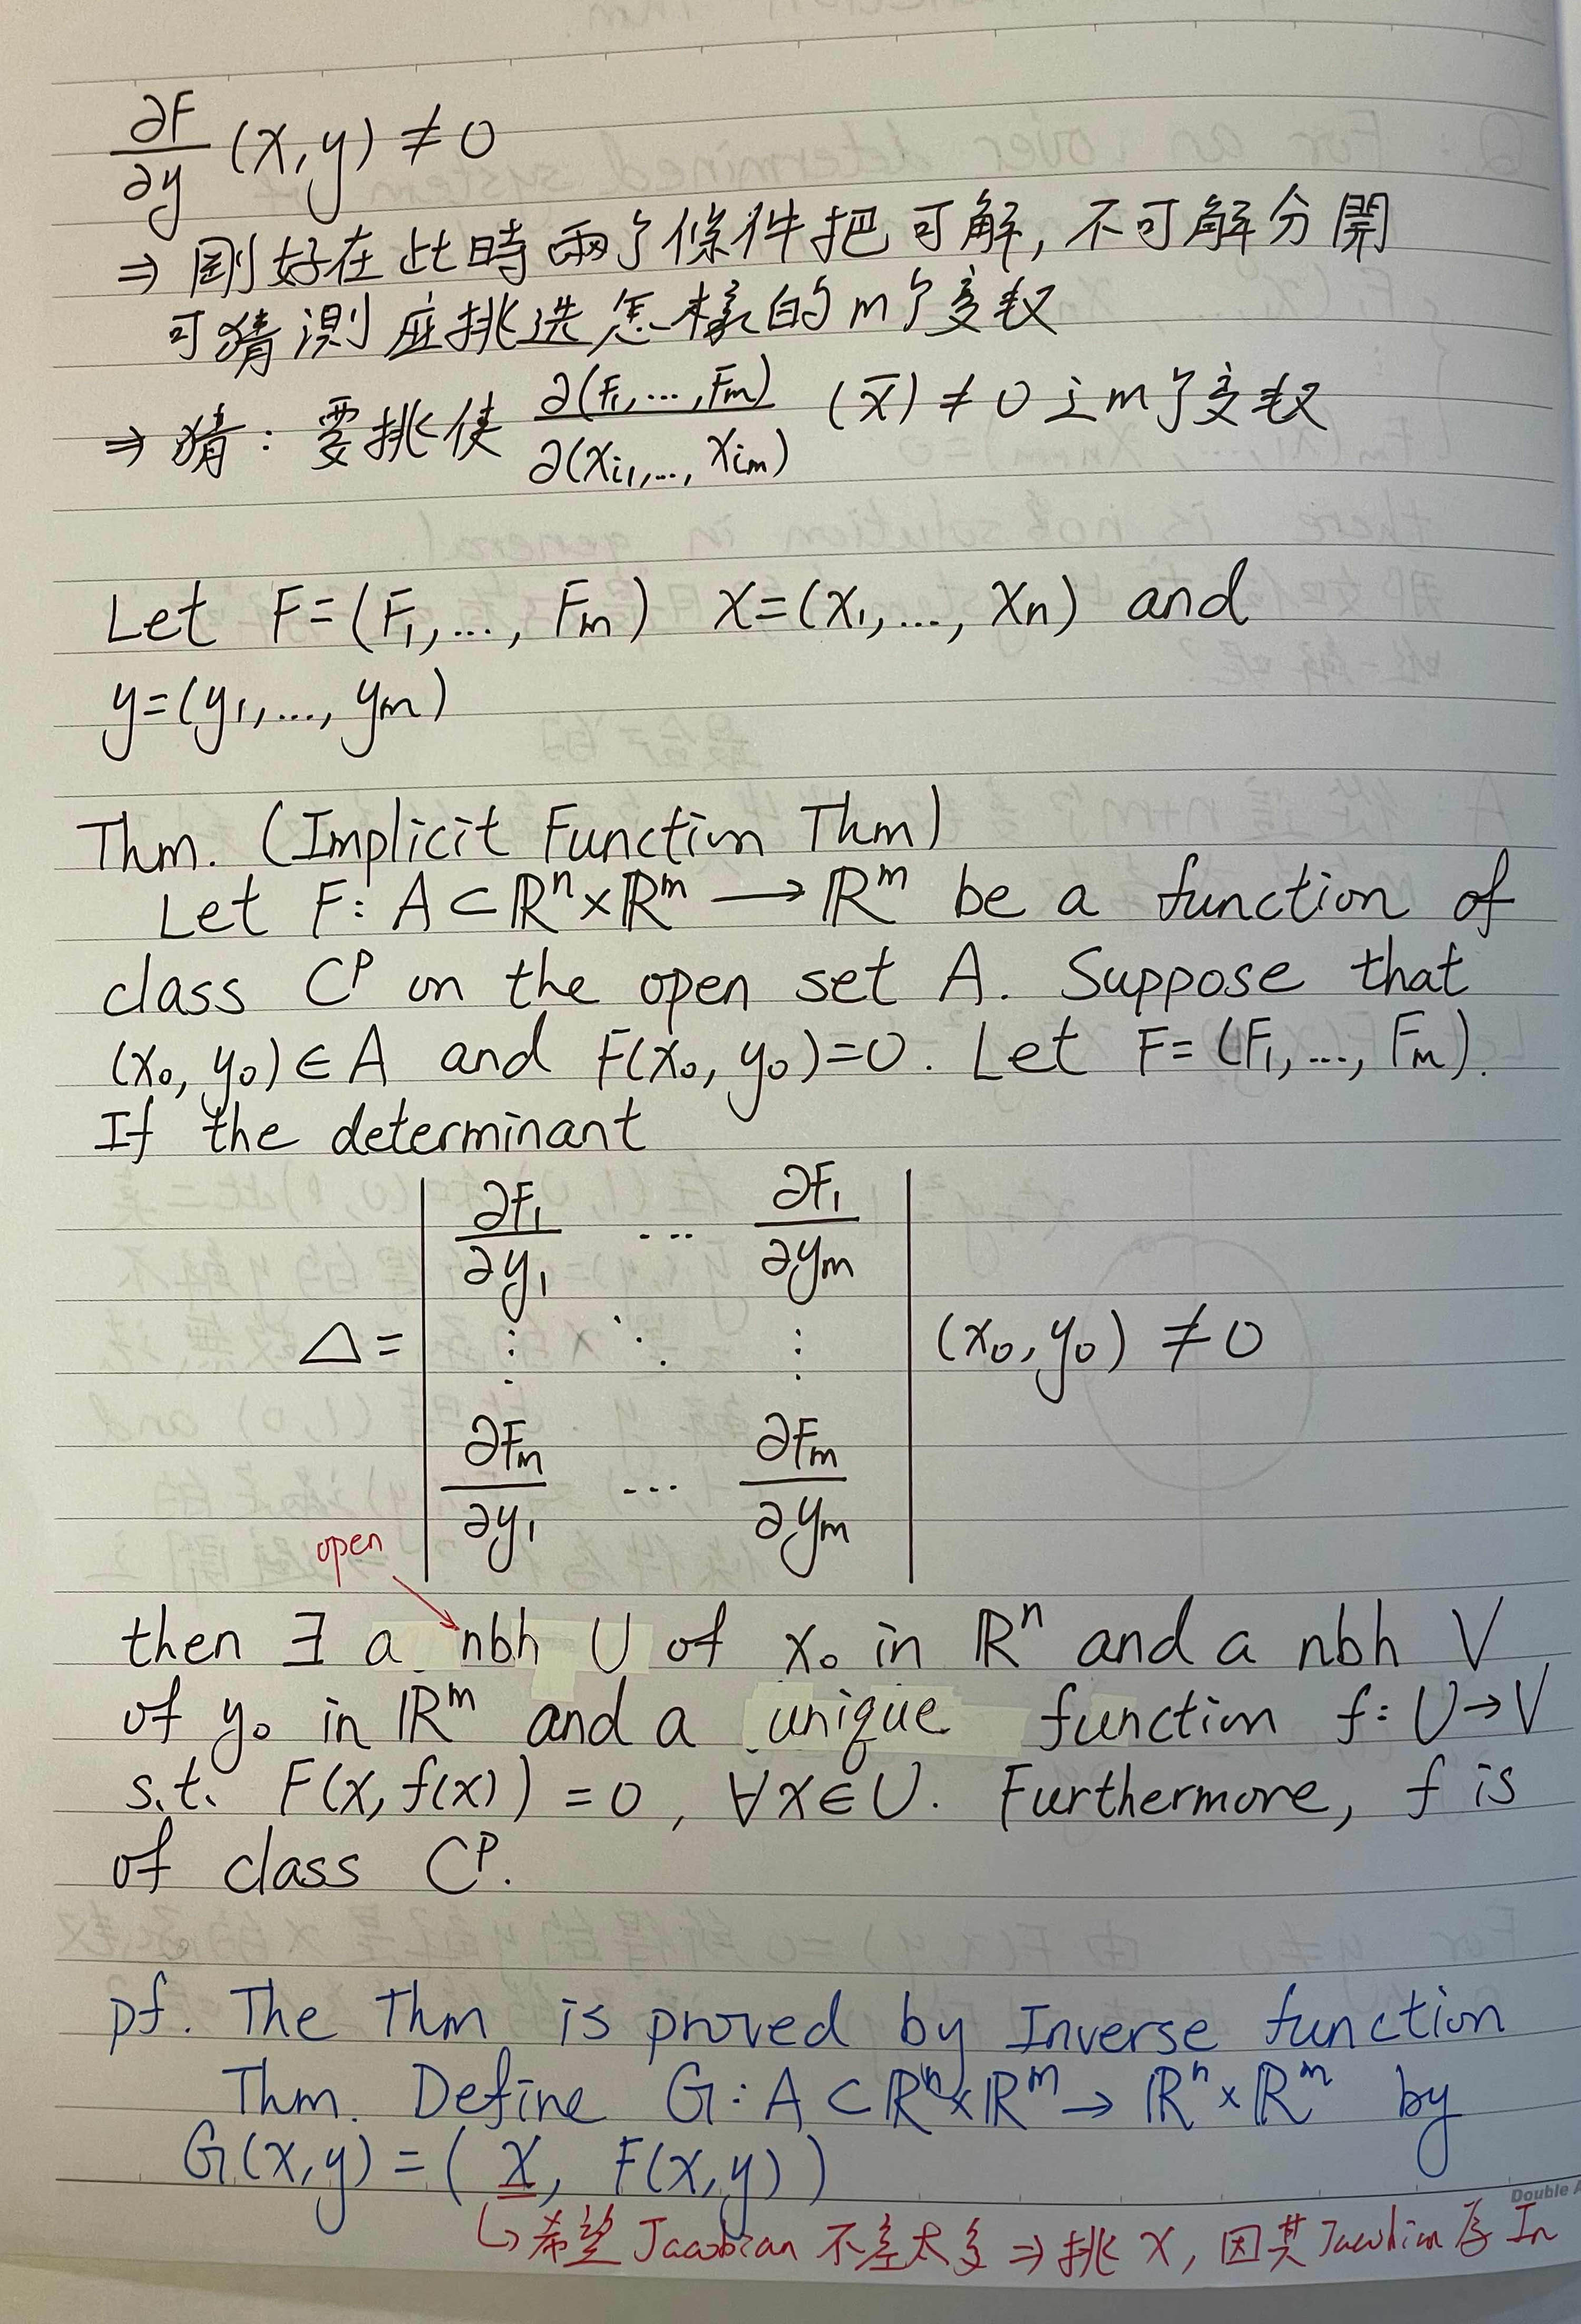 ∂F/∂y (x,y) ≠ 0
⇒ 剛好在此時兩个條件把可解,不可解分開
可猜測应挑选怎樣的m个变数
⇒ 猜:要挑使 ∂(F₁,...,Fm)/∂(xi₁,...,xim) (x̄) ≠ 0 之m个变数
Let F=(F₁,...,Fm) x=(x₁,...,xn) and
y=(y₁,...,ym)
Thm. (Implicit Function Thm)
Let F: A⊂ℝⁿ×ℝᵐ → ℝᵐ be a function of
class Cᵖ on the open set A. Suppose that
(x₀,y₀)∈A and F(x₀,y₀)=0. Let F=(F₁,...,Fm).
If the determinant
∂F₁/∂y₁ ... ∂F₁/∂ym
Δ= | ⋮ ⋱ ⋮ | (x₀,y₀) ≠ 0
∂Fm/∂y₁ ... ∂Fm/∂ym
open
then ∃ a nbh U of x₀ in ℝⁿ and a nbh V
of y₀ in ℝᵐ and a unique function f: U→V
s.t. F(x,f(x))=0, ∀x∈U. Furthermore, f is
of class Cᵖ.
pf. The Thm is proved by Inverse function
Thm. Define G: A⊂ℝⁿ×ℝᵐ → ℝⁿ×ℝᵐ by
G(x,y)=(x, F(x,y))
Double A
↳希望Jacobian不差太多⇒挑x,因其Jacobian为In